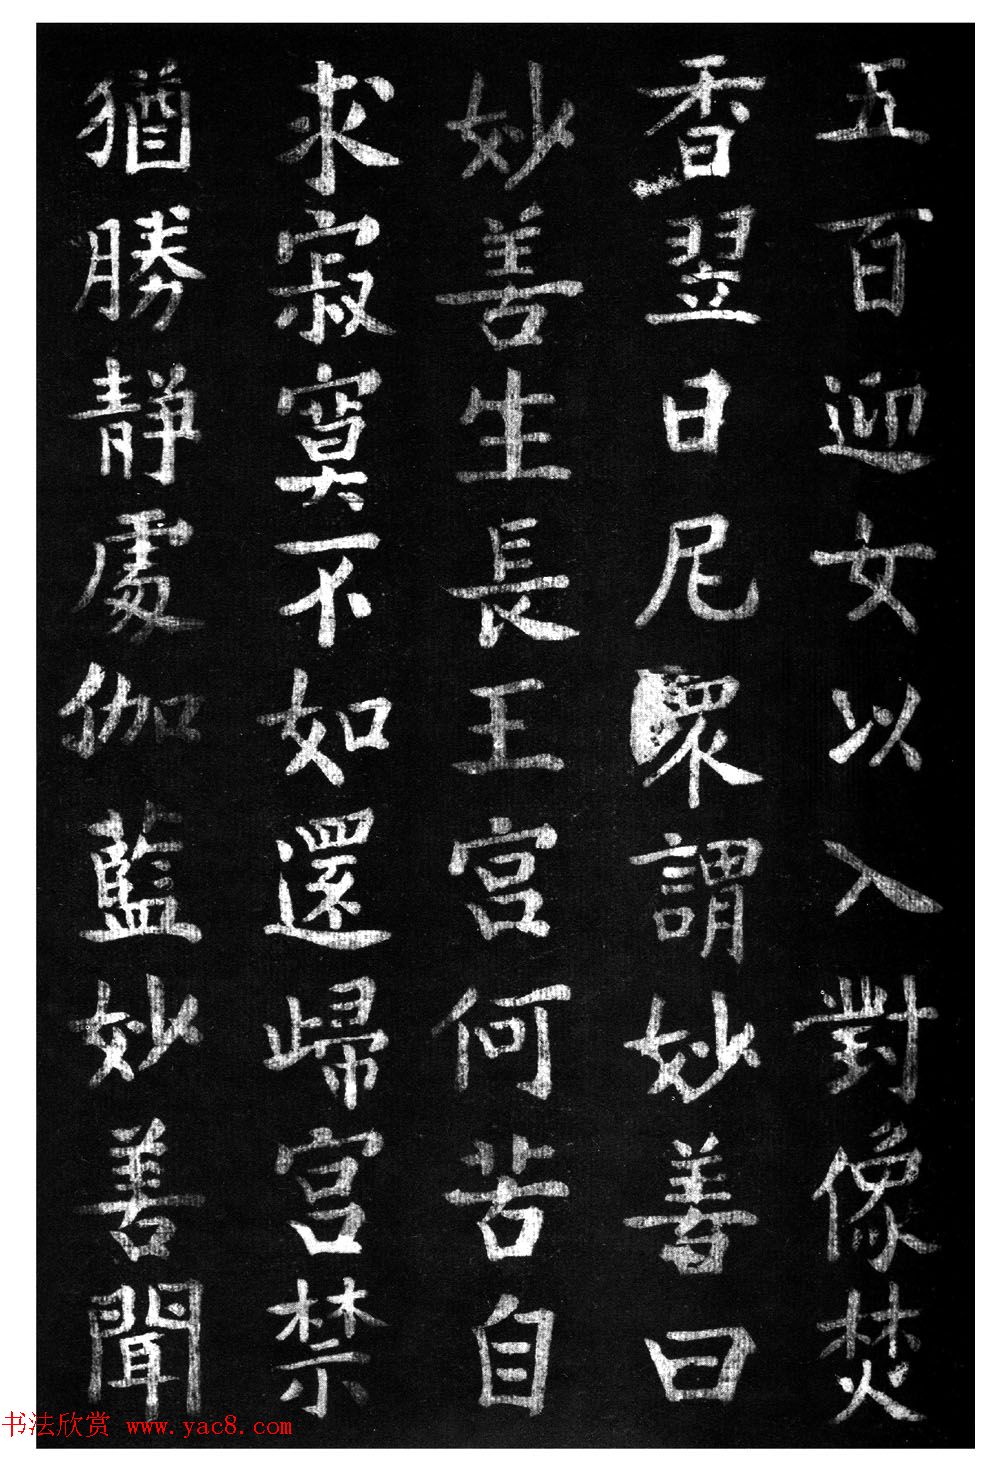 五百迎女以入對像焚
香翌日尼眾謂妙善曰
妙善生長王宮何苦自
求寂寞不如還歸宮禁
猶勝靜處伽藍妙善聞
书法欣赏 www.yac8.com